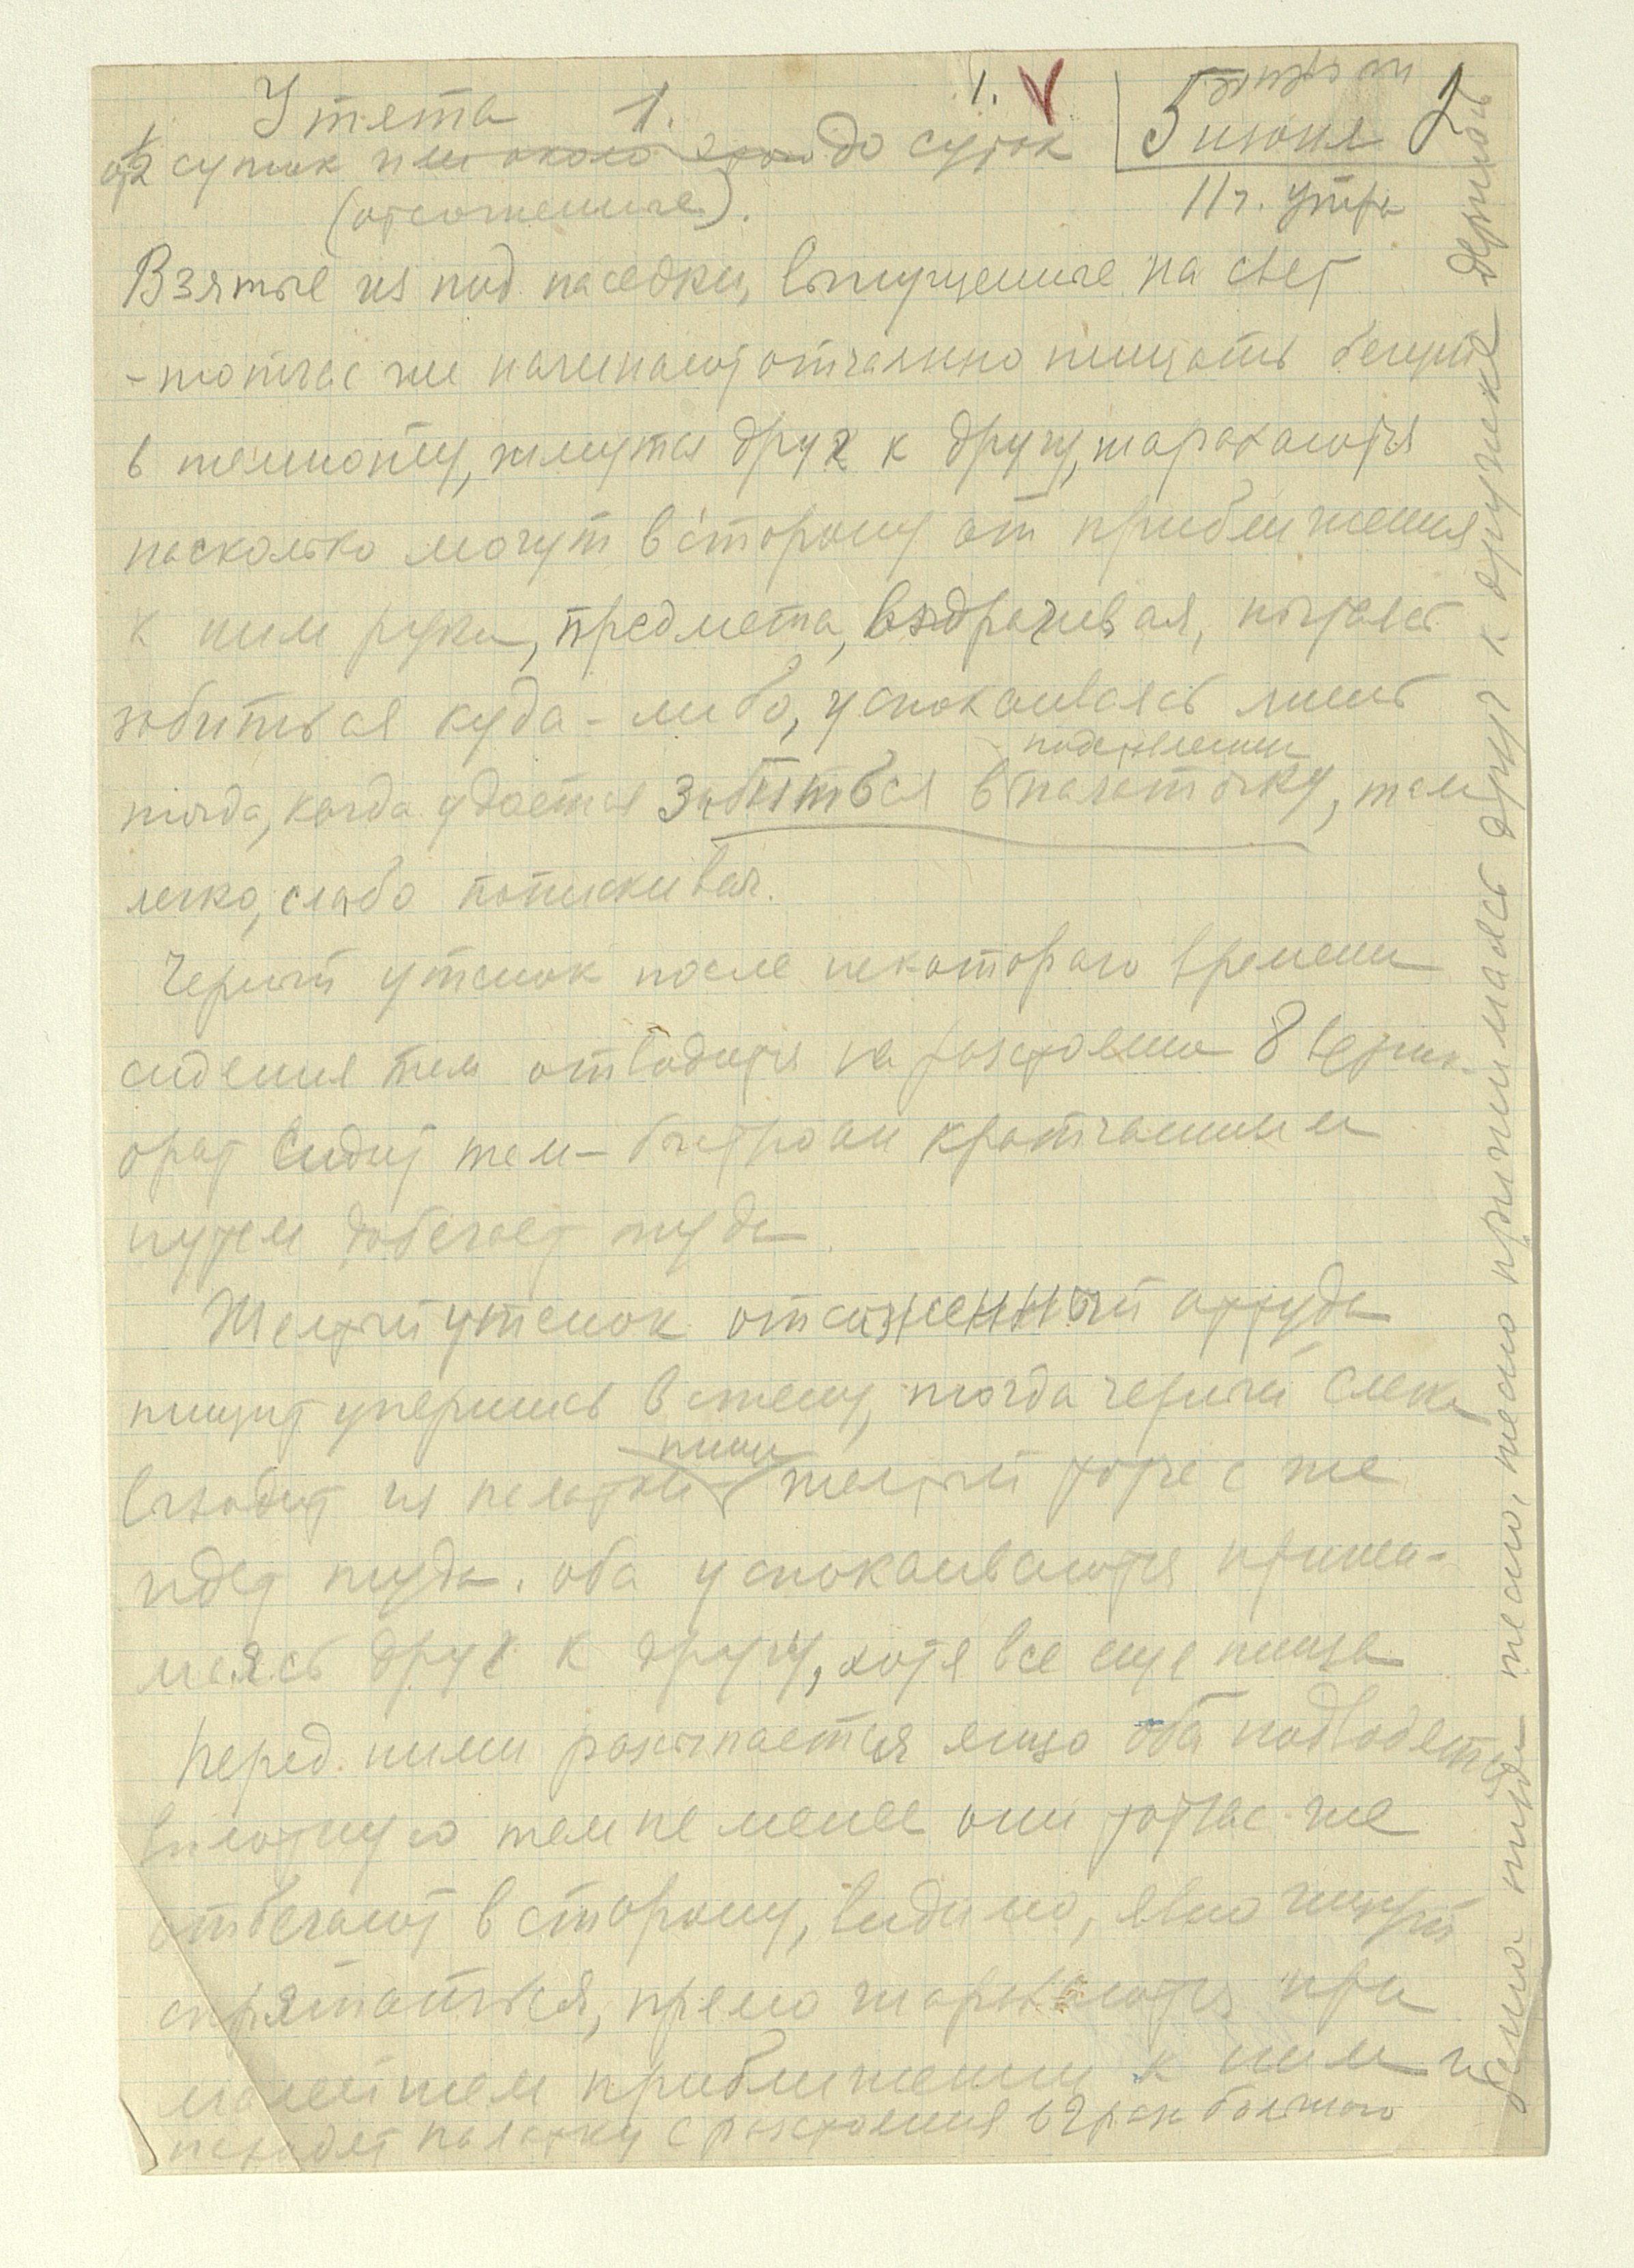 Утята 1. 1. V 5 июня 2
от ½ суток или около до суток
11 ч. утра
(отсаженные).
Взятые из под наседки, выпущенные на свет
- тотчас же начинают отчаянно пищать бегут
в темноту, жмутся друг к другу, шарахаются
насколько могут в сторону от приближения
к ним руки, предмета, вздрагивая, пытаясь
забиться куда-либо, успокаиваясь лишь
тогда, когда удается забиться в палаточку, там
легко, слабо попискивая.
Черный утенок после некоторого времени
сидения там отводится на расстояние 8 вершк.
орат видит там - быстро они кратчайшим
путем добегает туда.
Желтый утенок отсаженный оттуда
пищит упершись в стену, тогда черный слегка
выходит из палатки пища желтый тотчас же
идет туда. оба успокаиваются прижи-
маясь друг к другу, хотя все еще пища
Перед ними рассыпается яйцо оба подводятся
вплотную тем не менее они тотчас же
отбегают в сторону, видимо, явно ищут
спрятаться, прямо шарахаются при
малейшем приближении к ним и
находят палатку с расстояния в 2 раза большого
тесно, тесно прижимаясь друг к дружке держась